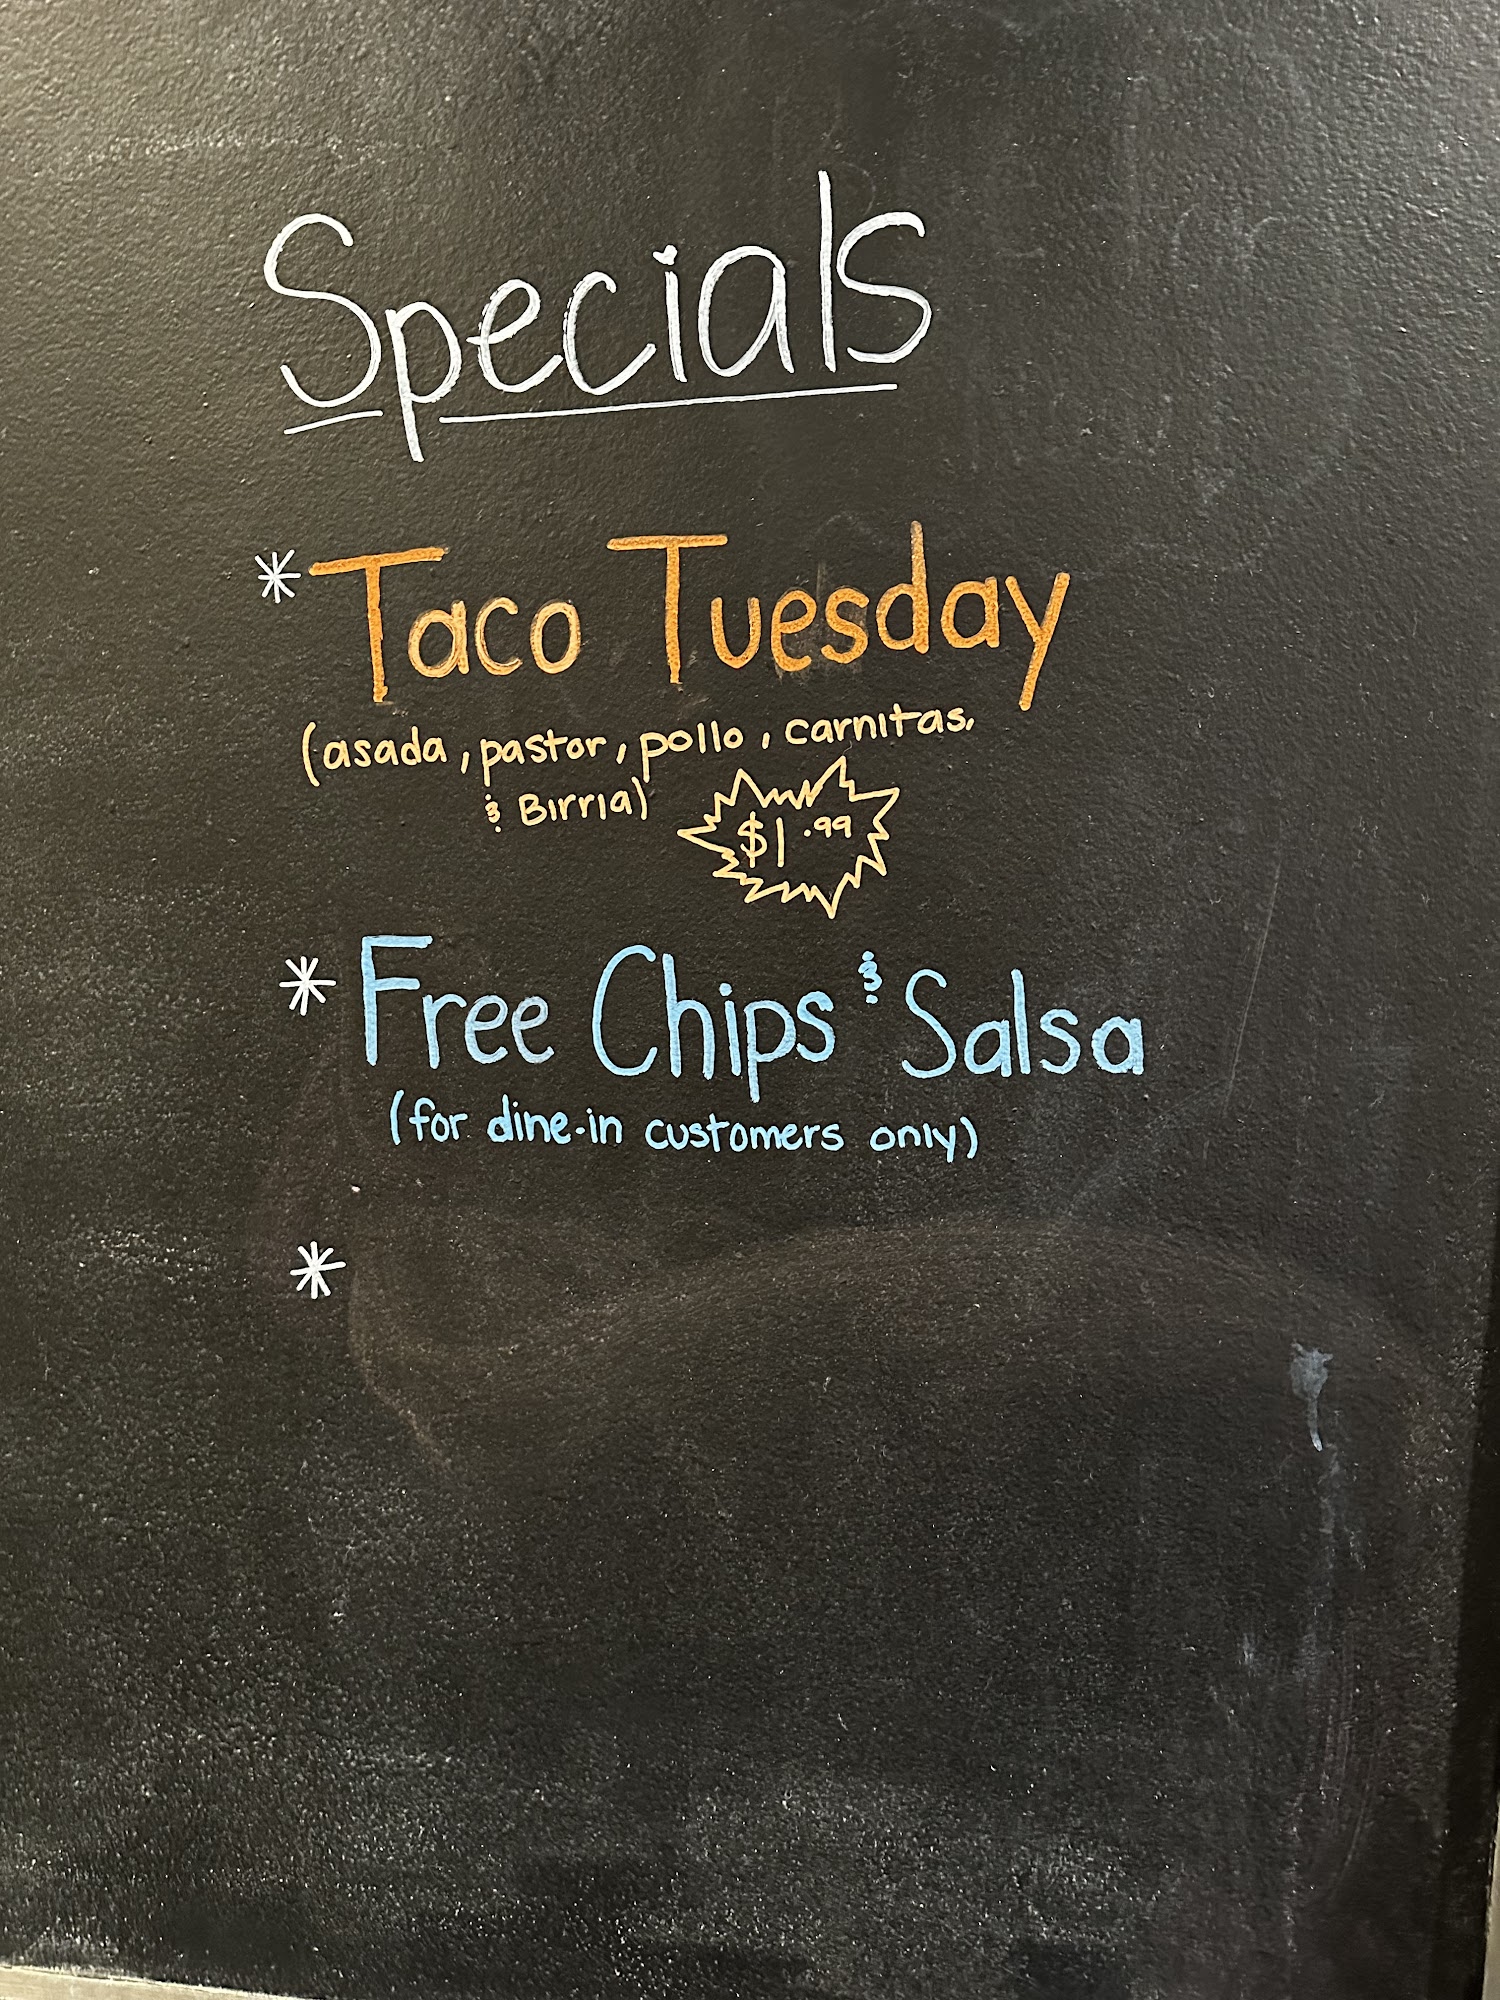 Specials
* Taco Tuesday
(asada, pastor, pollo, carnitas,
& Birria)
$1.99
* Free Chips & Salsa
(for dine-in customers only)
*